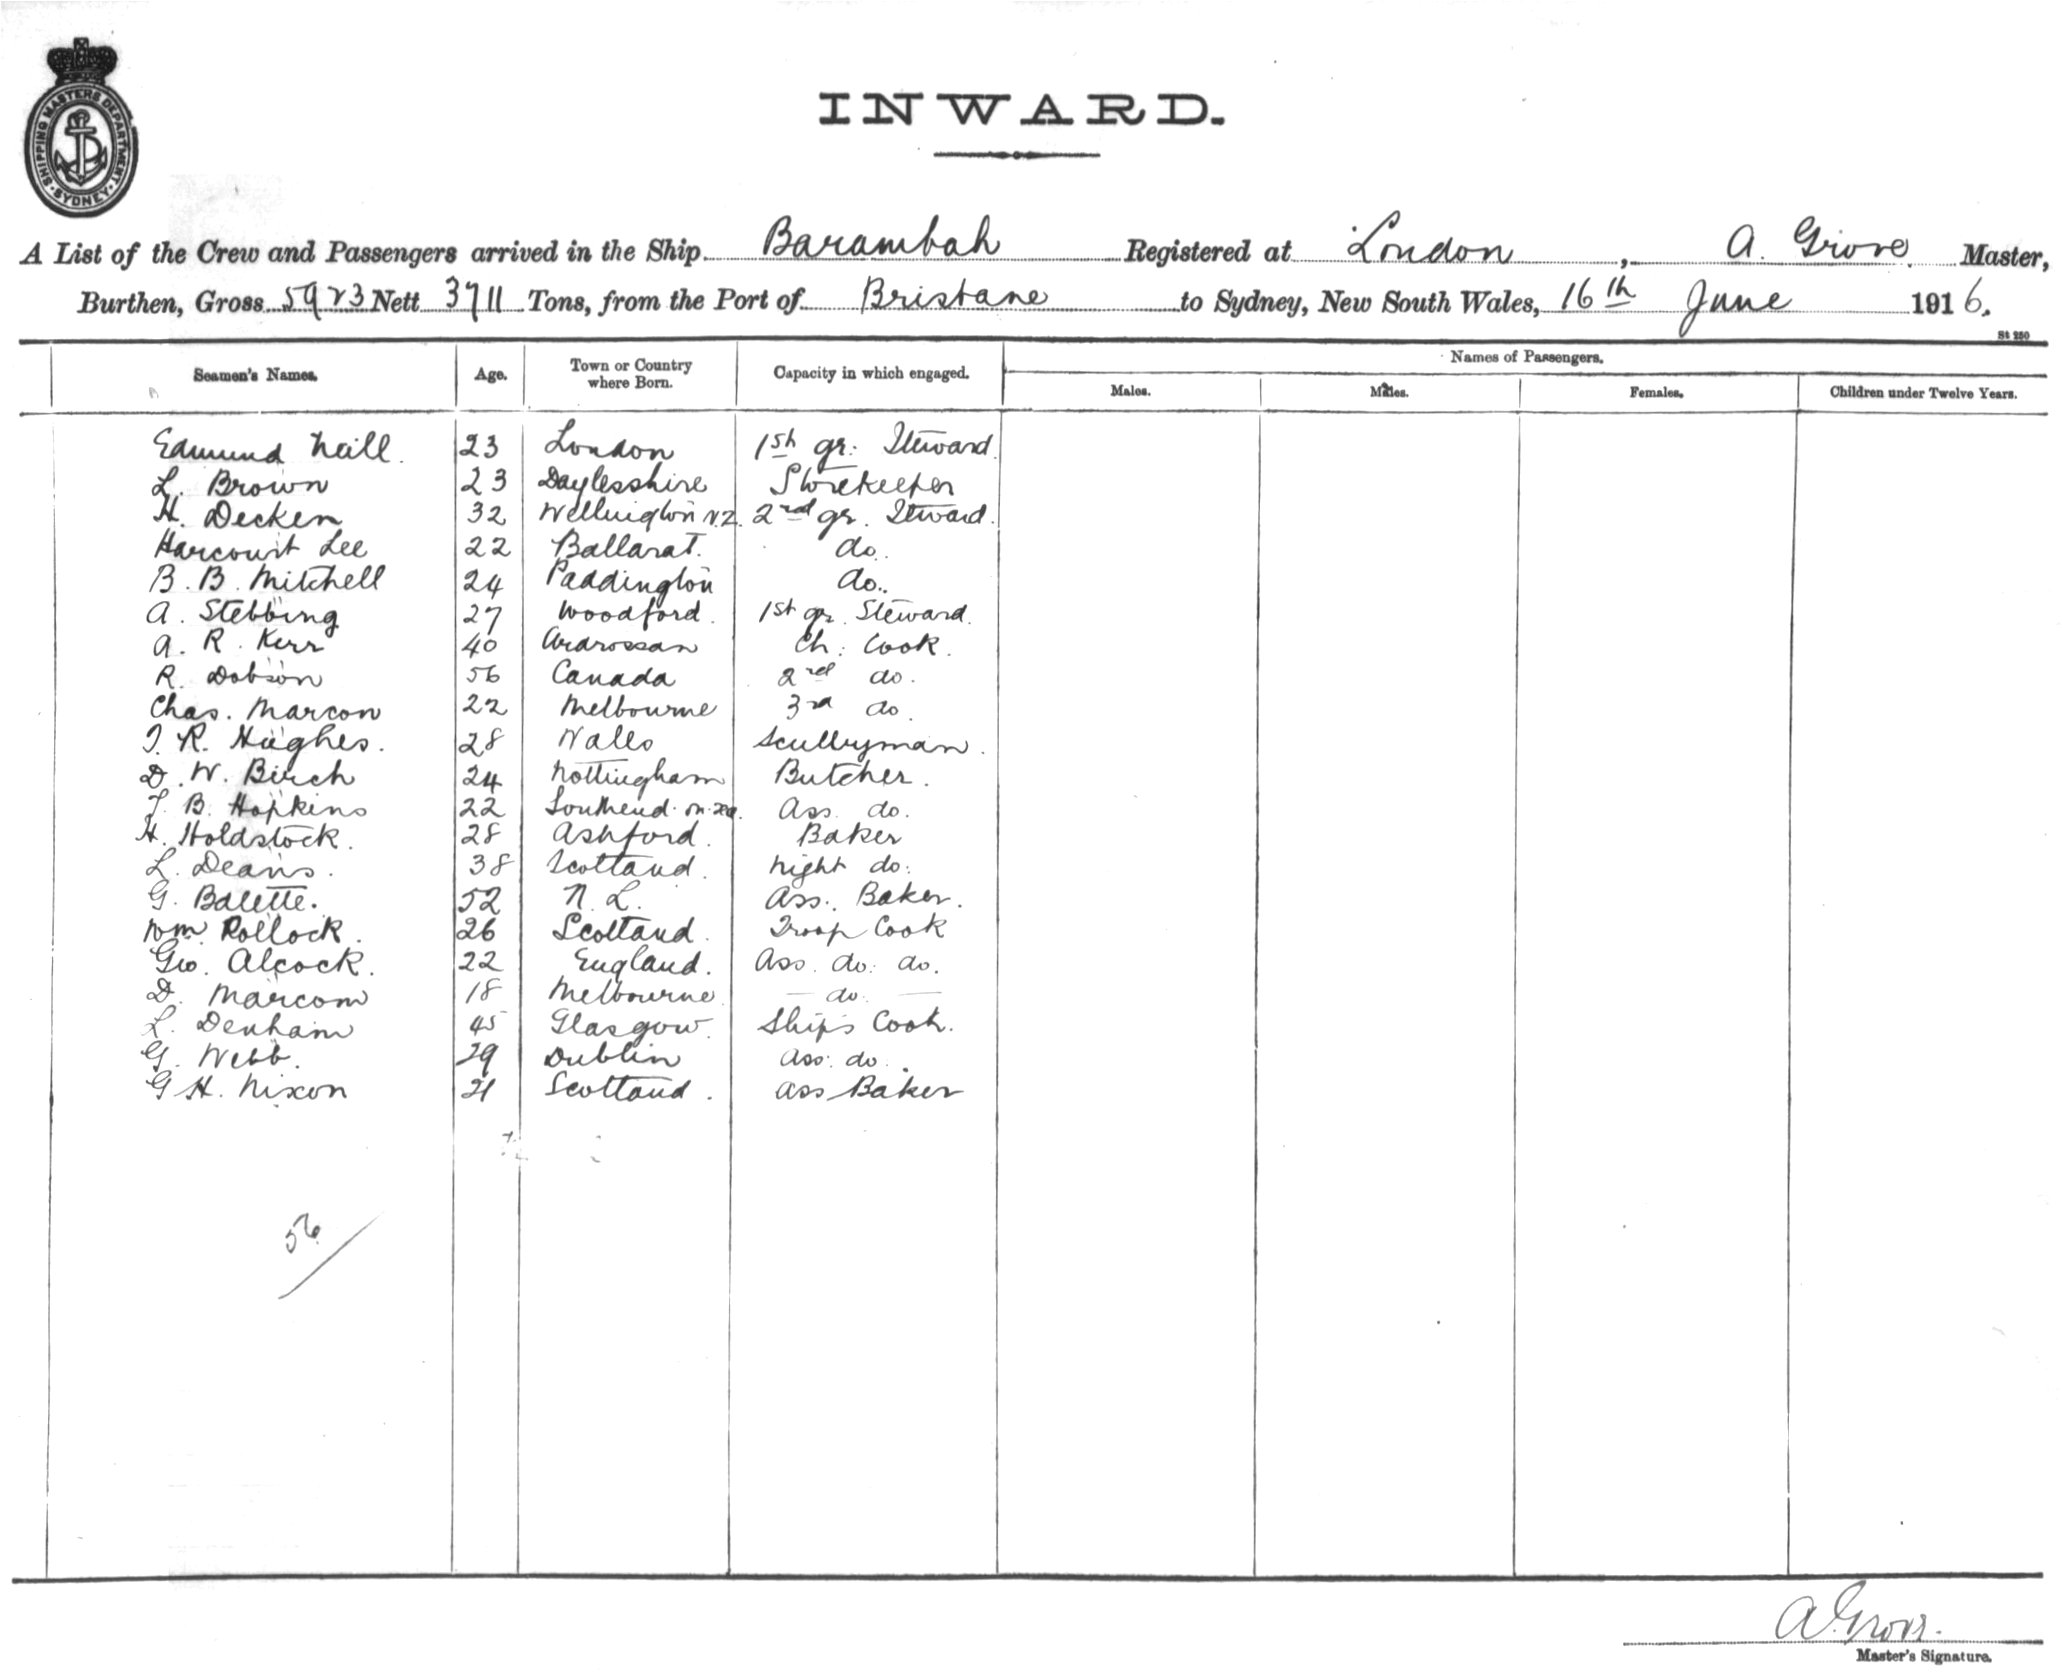 SHIPPING MASTERS DEPARTMENT
SYDNEY
INWARD.
A List of the Crew and Passengers arrived in the Ship Barambah Registered at London, A. Grove Master,
Burthen, Gross 5923 Nett 3711 Tons, from the Port of Brisbane to Sydney, New South Wales, 16th June 1916.
St 250
Seamen's Names. Age. Town or Country where Born. Capacity in which engaged. Names of Passengers.
Males. Males. Females. Children under Twelve Years.
Edmund Neill. 23 London 1st gr. Steward.
L. Brown 23 Daylesshire Storekeeper
H. Decken 32 Wellington N.Z. 2nd gr. Steward.
Harcourt Lee 22 Ballarat. do.
B. B. Mitchell 24 Paddington do.
A. Stebbing 27 Woodford. 1st gr. Steward.
A. R. Kerr 40 Ardrossan Ch. Cook.
R. Dobson 56 Canada 2nd do.
Chas. Marcon 22 Melbourne 3rd do.
T. R. Hughes. 28 Wales Scullyman.
D. W. Birch 24 Nottingham Butcher.
J. B. Hopkins 22 Southend on sea. Ass. do.
H. Holdstock. 28 Ashford. Baker
L. Deans. 38 Scotland. Night do.
G. Balette. 52 N. L. Ass. Baker.
Wm Pollock. 26 Scotland. Troop Cook
Geo. Alcock. 22 England. Ass. do. do.
D. Marcom 18 Melbourne. — do. —
L. Denham 45 Glasgow. Ship's Cook.
G. Webb. 29 Dublin Ass. do.
G H. Nixon 21 Scotland. Ass Baker
56
A. Grove.
Master's Signature.